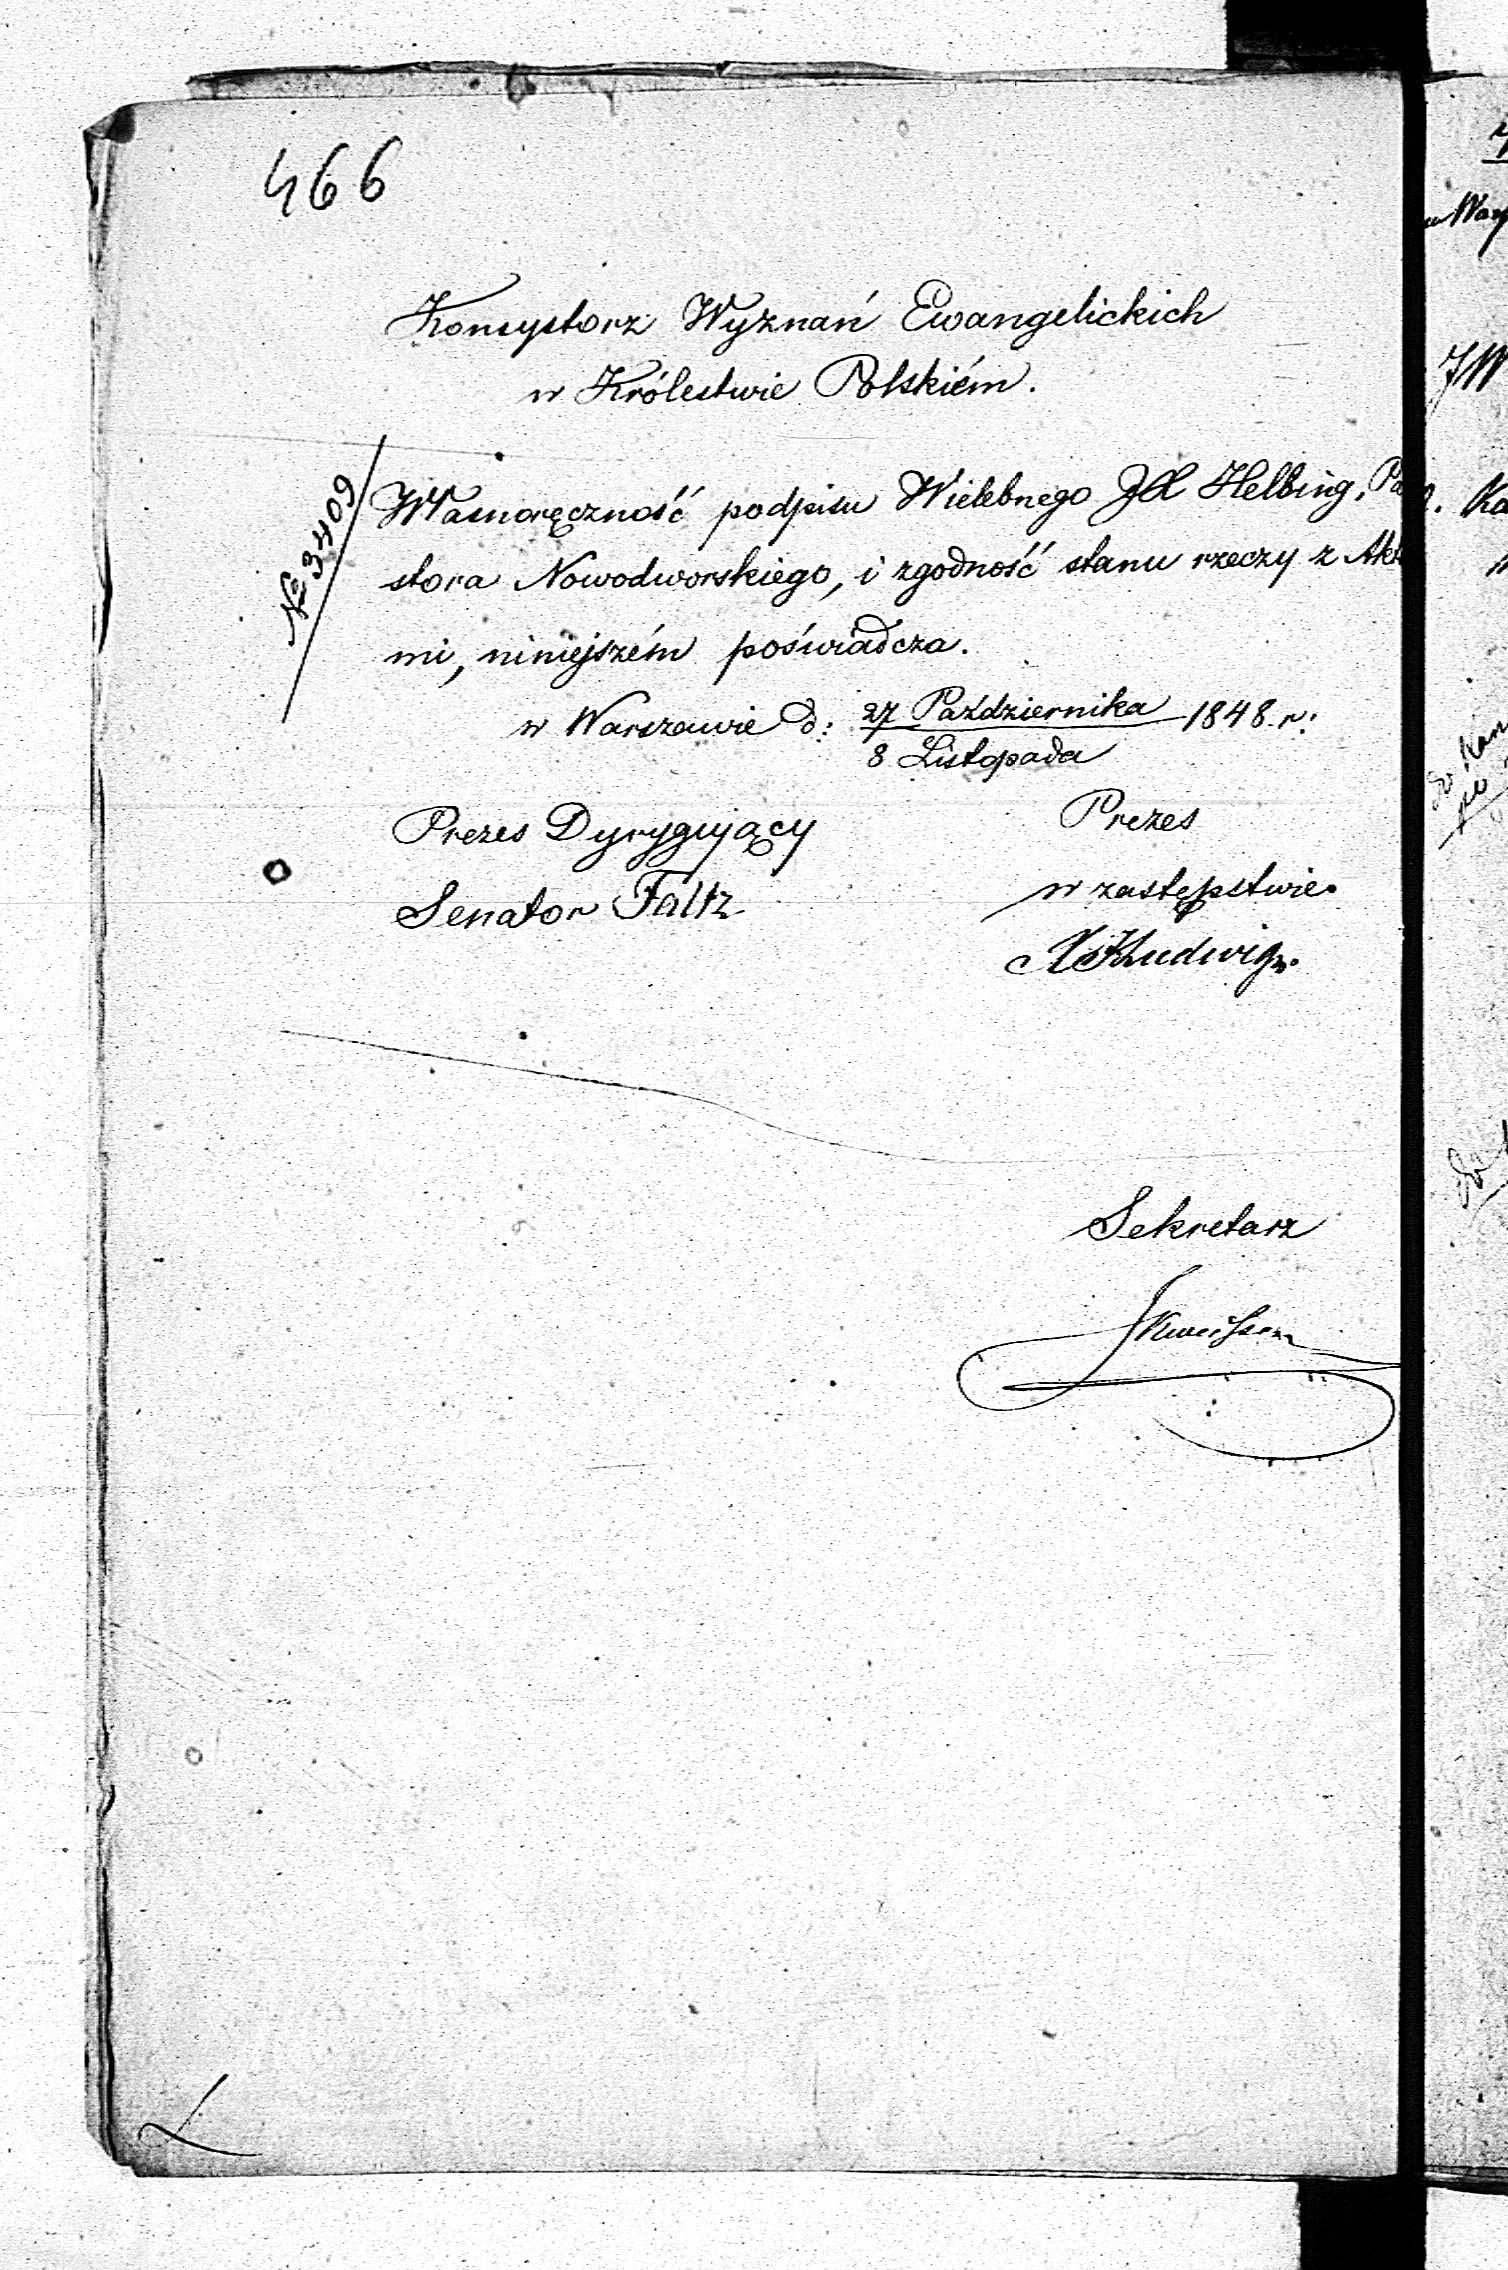 466
Konsystorz Wyznań Ewangelickich
w Królestwie Polskiém.
№ 3409
Własnoręczność podpisu Wielebnego Helbing, Pa
stora Nowodworskiego, i zgodność stanu rzeczy z Akt
mi, niniejszém poświadcza.
w Warszawie d: 27 Października 1848 r:
8 Listopada
Prezes Dyrygujący
Prezes
Senator Faltz
w zastępstwie
Ludwig
Sekretarz